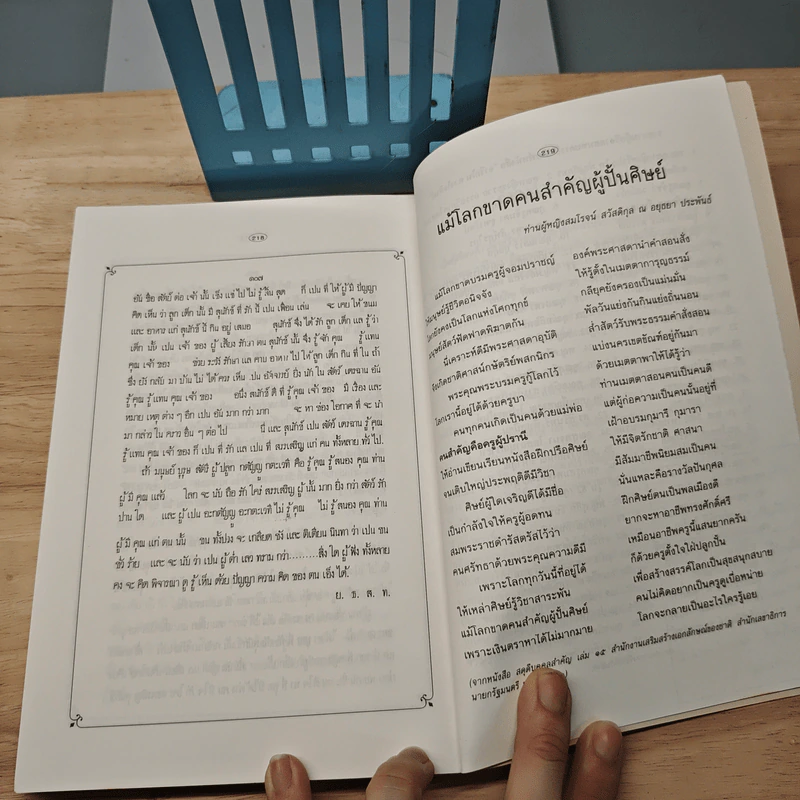 218
๓๐๗
อัน ซื่อ สัตย์ ต่อ เจ้า นั้น เช่น แช่ ไป ไม่ รู้ สิ้น สุด ก็ เปน ที่ ให้ ผู้ มี ปัญญา
คิด เห็น ว่า ลูก เด็ก นั้น มี สุนักข์ ที่ รัก ปี เปน เพื่อน เล่น จะ เคย ให้ ขนม
และ อาหาร แก่ สุนักข์ ปี กิน อยู่ เสมอ สุนักข์ จึง ได้ รัก ลูก เด็ก แล รู้ ว่า
เด็ก นั้น เปน เจ้า ของ ผู้ เลี้ยง รักษา ตน สุนักข์ นั้น จึง รู้จัก คุณ รู้ แทน
คุณ เจ้า ของ ช่วย ระวัง รักษา แล คาบ อาหาร ไป ให้ ลูก เด็ก กิน ที่ ใน ถ้ำ
ซึ่ง ยัง กลับ มา บ้าน ไม่ ได้ ควร เห็น เปน อัจฉริย์ ยิ่ง นัก ใน สัตว์ เดระฉาน อัน
รู้ คุณ รู้ แทน คุณ เจ้า ของ อนึ่ง สุนักข์ ดี ที่ รู้ คุณ เจ้า ของ มี เรื่อง และ
หมาย เหตุ ต่าง ๆ อีก เปน อัน มาก กว่า มาก จะ หา ช่อง โอกาศ ที่ จะ นำ
มา กล่าว ใน คราว อื่น ๆ ต่อ ไป นี่ แล สุนักข์ เปน สัตว์ เดระฉาน รู้ คุณ
รู้ แทน คุณ เจ้า ของ ก็ เปน ที่ รัก แล เปน ที่ สรรเสริญ แก่ คน ทั้งหลาย ทั่ว ไป.
ถ้า มนุษย์ บุรุษ สัตรี ผู้ ปลูก กตัญญู กตะเวที คือ รู้ คุณ รู้ สนอง คุณ ท่าน
ผู้ มี คุณ แล้ว โลก จะ นับ ถือ รัก ใคร่ สรรเสริญ ผู้ นั้น มาก ยิ่ง กว่า สัตว์ รัก
ปาน ใด และ ผู้ เปน อะกตัญญู อะกตะเวที ไม่ รู้ คุณ ไม่ รู้ สนอง คุณ ท่าน
ผู้ มี คุณ แก่ ตน นั้น ชน ทั้งปวง จะ เกลียด ชัง และ ติเตียน นินทา ว่า เปน ชน
ชั่ว ร้าย และ จะ นับ ว่า เปน ผู้ ต่ำ เลว ทราม กว่า........สิ่ง ใด ผู้ ฟัง ทั้งหลาย
คง จะ คิด พิจารณา ดู รู้ เห็น ด้วย ปัญญา ความ คิด ของ ตน เอง ได้.
ย. ธ. ส. ท.
219
แม้โลกขาดคนสำคัญผู้ปั้นศิษย์
ท่านผู้หญิงสมโรจน์ สวัสดิกุล ณ อยุธยา ประพันธ์
แม้โลกขาดบรมครูผู้จอมปราชญ์ องค์พระศาสดานำคำสอนสั่ง
ให้มนุษย์รู้ชีวิตอนิจจัง ให้รู้ตั้งในเมตตาการุญธรรม์
โลกยังคงเป็นโลกแห่งโศกทุกข์ กลียุคยังครองเป็นแม่นมั่น
มนุษย์สัตว์ฟัดฟาดพิฆาตกัน พัลวันแย่งกันกินแย่งถิ่นนอน
นี่เคราะห์ดีมีพระศาสดาอุบัติ ลำสัตว์รับพระธรรมคำสั่งสอน
จึงเกิดชาติศาสน์กษัตริย์พสกนิกร แบ่งนครเขตขัณฑ์อยู่กันมา
พระคุณพระบรมครูกู้โลกไว้ ด้วยเมตตาพาให้ได้รู้ว่า
โลกเรานี้อยู่ได้ด้วยครูบา ท่านเมตตาสอนคนเป็นคนดี
คนทุกคนเกิดเป็นคนด้วยแม่พ่อ แต่ผู้ก่อความเป็นคนนั้นอยู่ที่
คนสำคัญคือครูผู้ปรานี เฝ้าอบรมกุมารี กุมารา
ให้อ่านเขียนเรียนหนังสือฝึกปรือศิษย์ ให้มีจิตรักชาติ ศาสนา
จนเติบใหญ่ประพฤติดีมีวิชา มีสัมมาชีพนิยมสมเป็นคน
ศิษย์ผู้ใดเจริญดีได้มีชื่อ นั่นแหละคือรางวัลปันกุศล
เป็นกำลังใจให้ครูผู้อดทน ฝึกศิษย์ตนเป็นพลเมืองดี
สมพระราชดำรัสตรัสไว้ว่า ยากจะหาอาชีพทรงศักดิ์ศรี
คนศรัทธาด้วยพระคุณความดีมี เหมือนอาชีพครูนี้แสนยากครัน
เพราะโลกทุกวันนี้ที่อยู่ได้ ก็ด้วยครูตั้งใจไฝ่ปลูกปั้น
ให้เหล่าศิษย์รู้วิชาสาระพัน เพื่อสร้างสรรค์โลกเป็นสุขสนุกสบาย
แม้โลกขาดคนสำคัญผู้ปั้นศิษย์ คนไม่คิดอยากเป็นครูดูเบื่อหน่าย
เพราะเงินตราหาได้ไม่มากมาย โลกจะกลายเป็นอะไรใครรู้เอย
(จากหนังสือ สดุดีบุคคลสำคัญ เล่ม ๑๕ สำนักงานเสริมสร้างเอกลักษณ์ของชาติ สำนักเลขาธิการ
นายกรัฐมนตรี